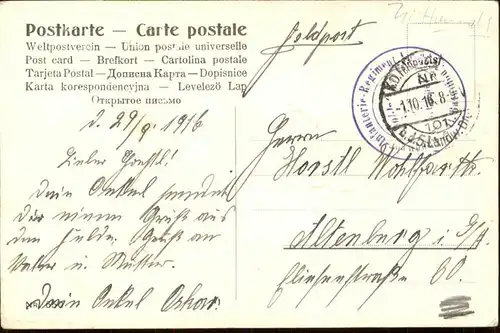 Postkarte — Carte postale
Weltpostverein — Union postale universelle
Post card — Brefkort — Cartolina postale
Tarjeta Postal — Дописна Карта — Dopisnice
Karta korespondencyjna — Levelező Lap
Открытое письмо
Feldpost
d. 29/9. 1916
Lieber Horstl!
Dein Onkel sendet
dir einen Gruß aus
dem Felde. Gruß an
Vater u. Mutter.
Dein Onkel Oskar.
Herrn
Horstl Wohlfarth
Altenburg i. S/A.
Eliesenstraße 60.
Infanterie-Regiment
1.10.16. 8-
d. 5. Landw. Div.